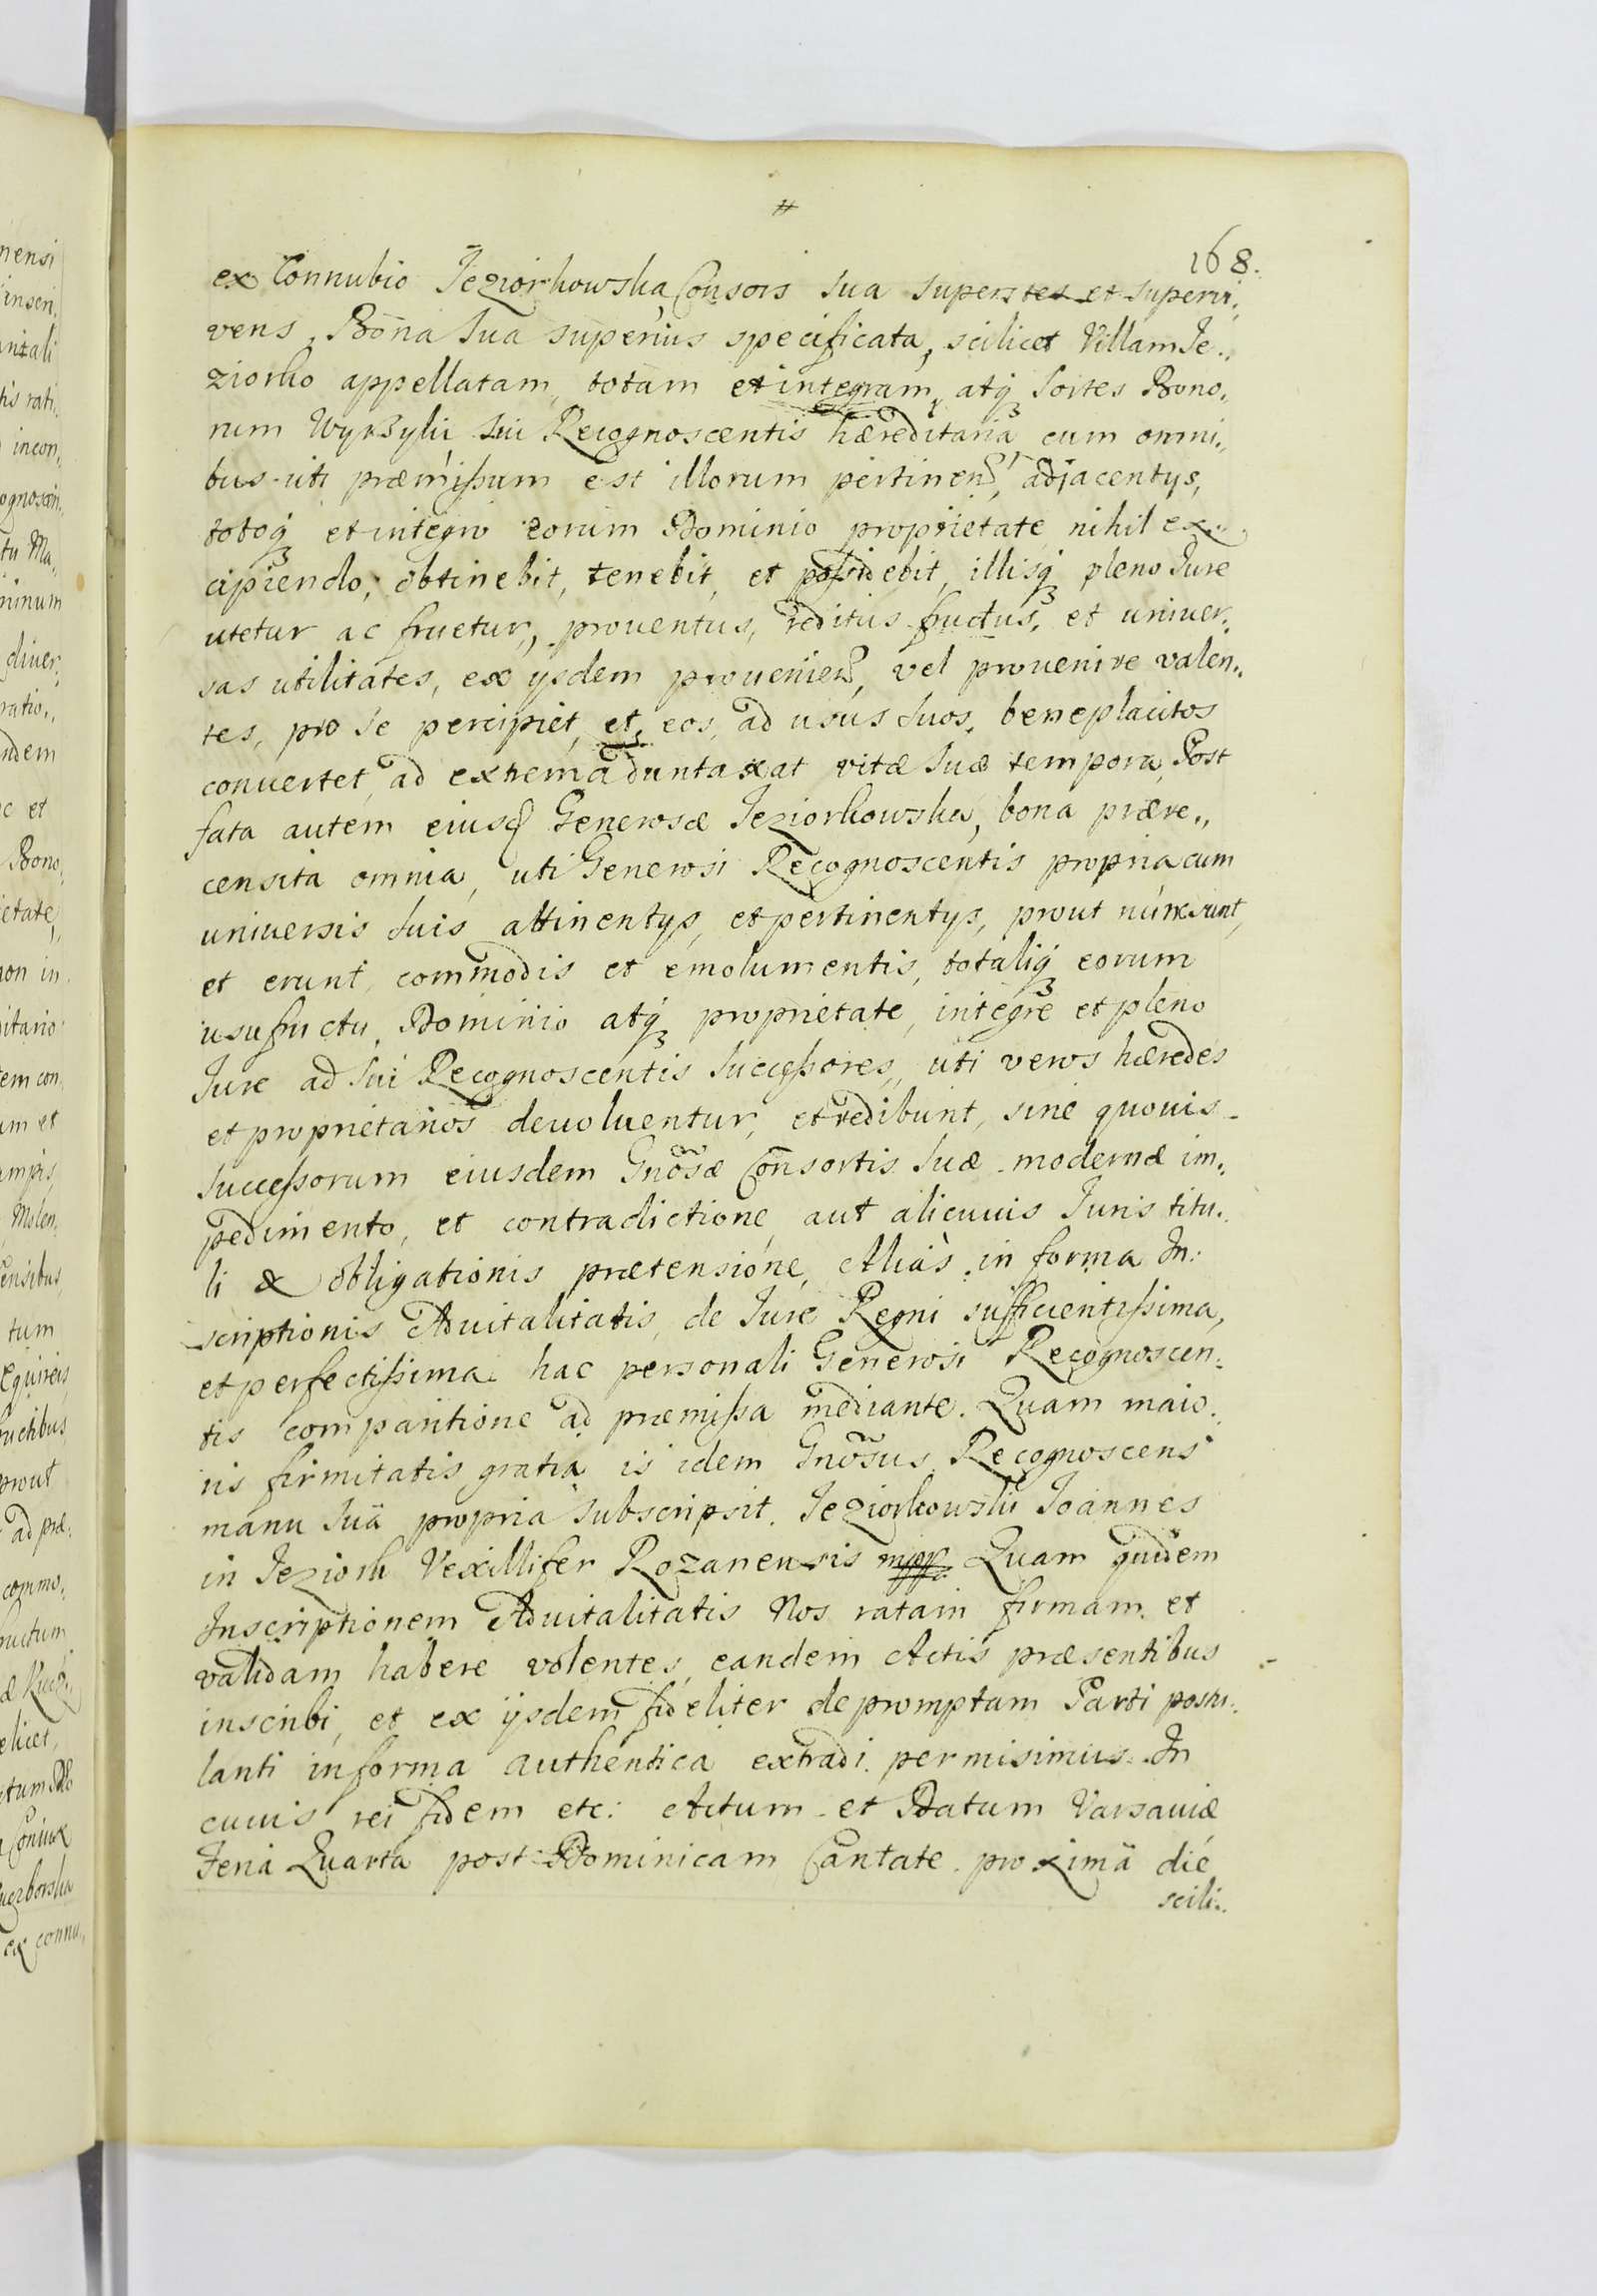 168.
ex Connubio Jeziorkowska Consors sua superstes et supervi„
vens, Bona sua superius specificata, scilicet Villam Je„
ziorko appellatam, totam et integram, atq3 Sortes Bono„
rum Wyrzyki sui Recognoscentis hæreditaria cum omni„
bus uti præmissum est illorum pertinen, adjacentijs,
totoq3 et integro eorum Dominio proprietate nihil ex„
cipiendo, obtinebit, tenebit, et possidebit, illisq3 pleno Jure
utetur ac fruetur, prouentus, reditus fructus, et uniuer„
sas utilitates, ex ijsdem prouenien, vel prouenire valen„
tes, pro se percipiet, et eos, ad usus suos, beneplacitos
conuertet, ad extrema duntaxat vitæ suæ tempora, Post
fata autem eiusd Generosæ Jeziorkowska, bona prære„
censita omnia, uti Generosi Recognoscentis propria cum
uniuersis suis attinentijs, et pertinentijs, prout nunc sunt,
et erunt, commodis et emolumentis, totaliq3 eorum
usufructu, Dominio atq3 proprietate, integre et pleno
Jure ad sui Recognoscentis Successores, uti veros hæredes
et proprietarios deuoluentur, et redibunt, sine quouis
Successorum eiusdem Gnosæ Consortis suæ modernæ im„
pedimento, et contradictione, aut alicuius Juris titu„
li & obligationis prætensione, Alias in forma In„
scriptionis Aduitalitatis, de Jure Regni sufficientissima,
et perfectissima hac personali Generosi Recognoscen„
tis comparitione ad præmissa mediante. Quam maio„
ris firmitatis gratia is idem Gnosus Recognoscens
manu suâ propria subscripsit. Jeziorkowski Joannes
in Jeziork Vexillifer Rozanensis mpp. Quam quidem
Inscriptionem Aduitalitatis Nos ratam firmam et
validam habere volentes, eandem Actis præsentibus
inscribi, et ex ijsdem fideliter depromptam Parti postu„
lanti in forma authentica extradi permisimus. In
cuius rei fidem etc: Actum et Datum Varsauiæ
Feria Quarta post Dominicam Cantate proximâ die
scili„